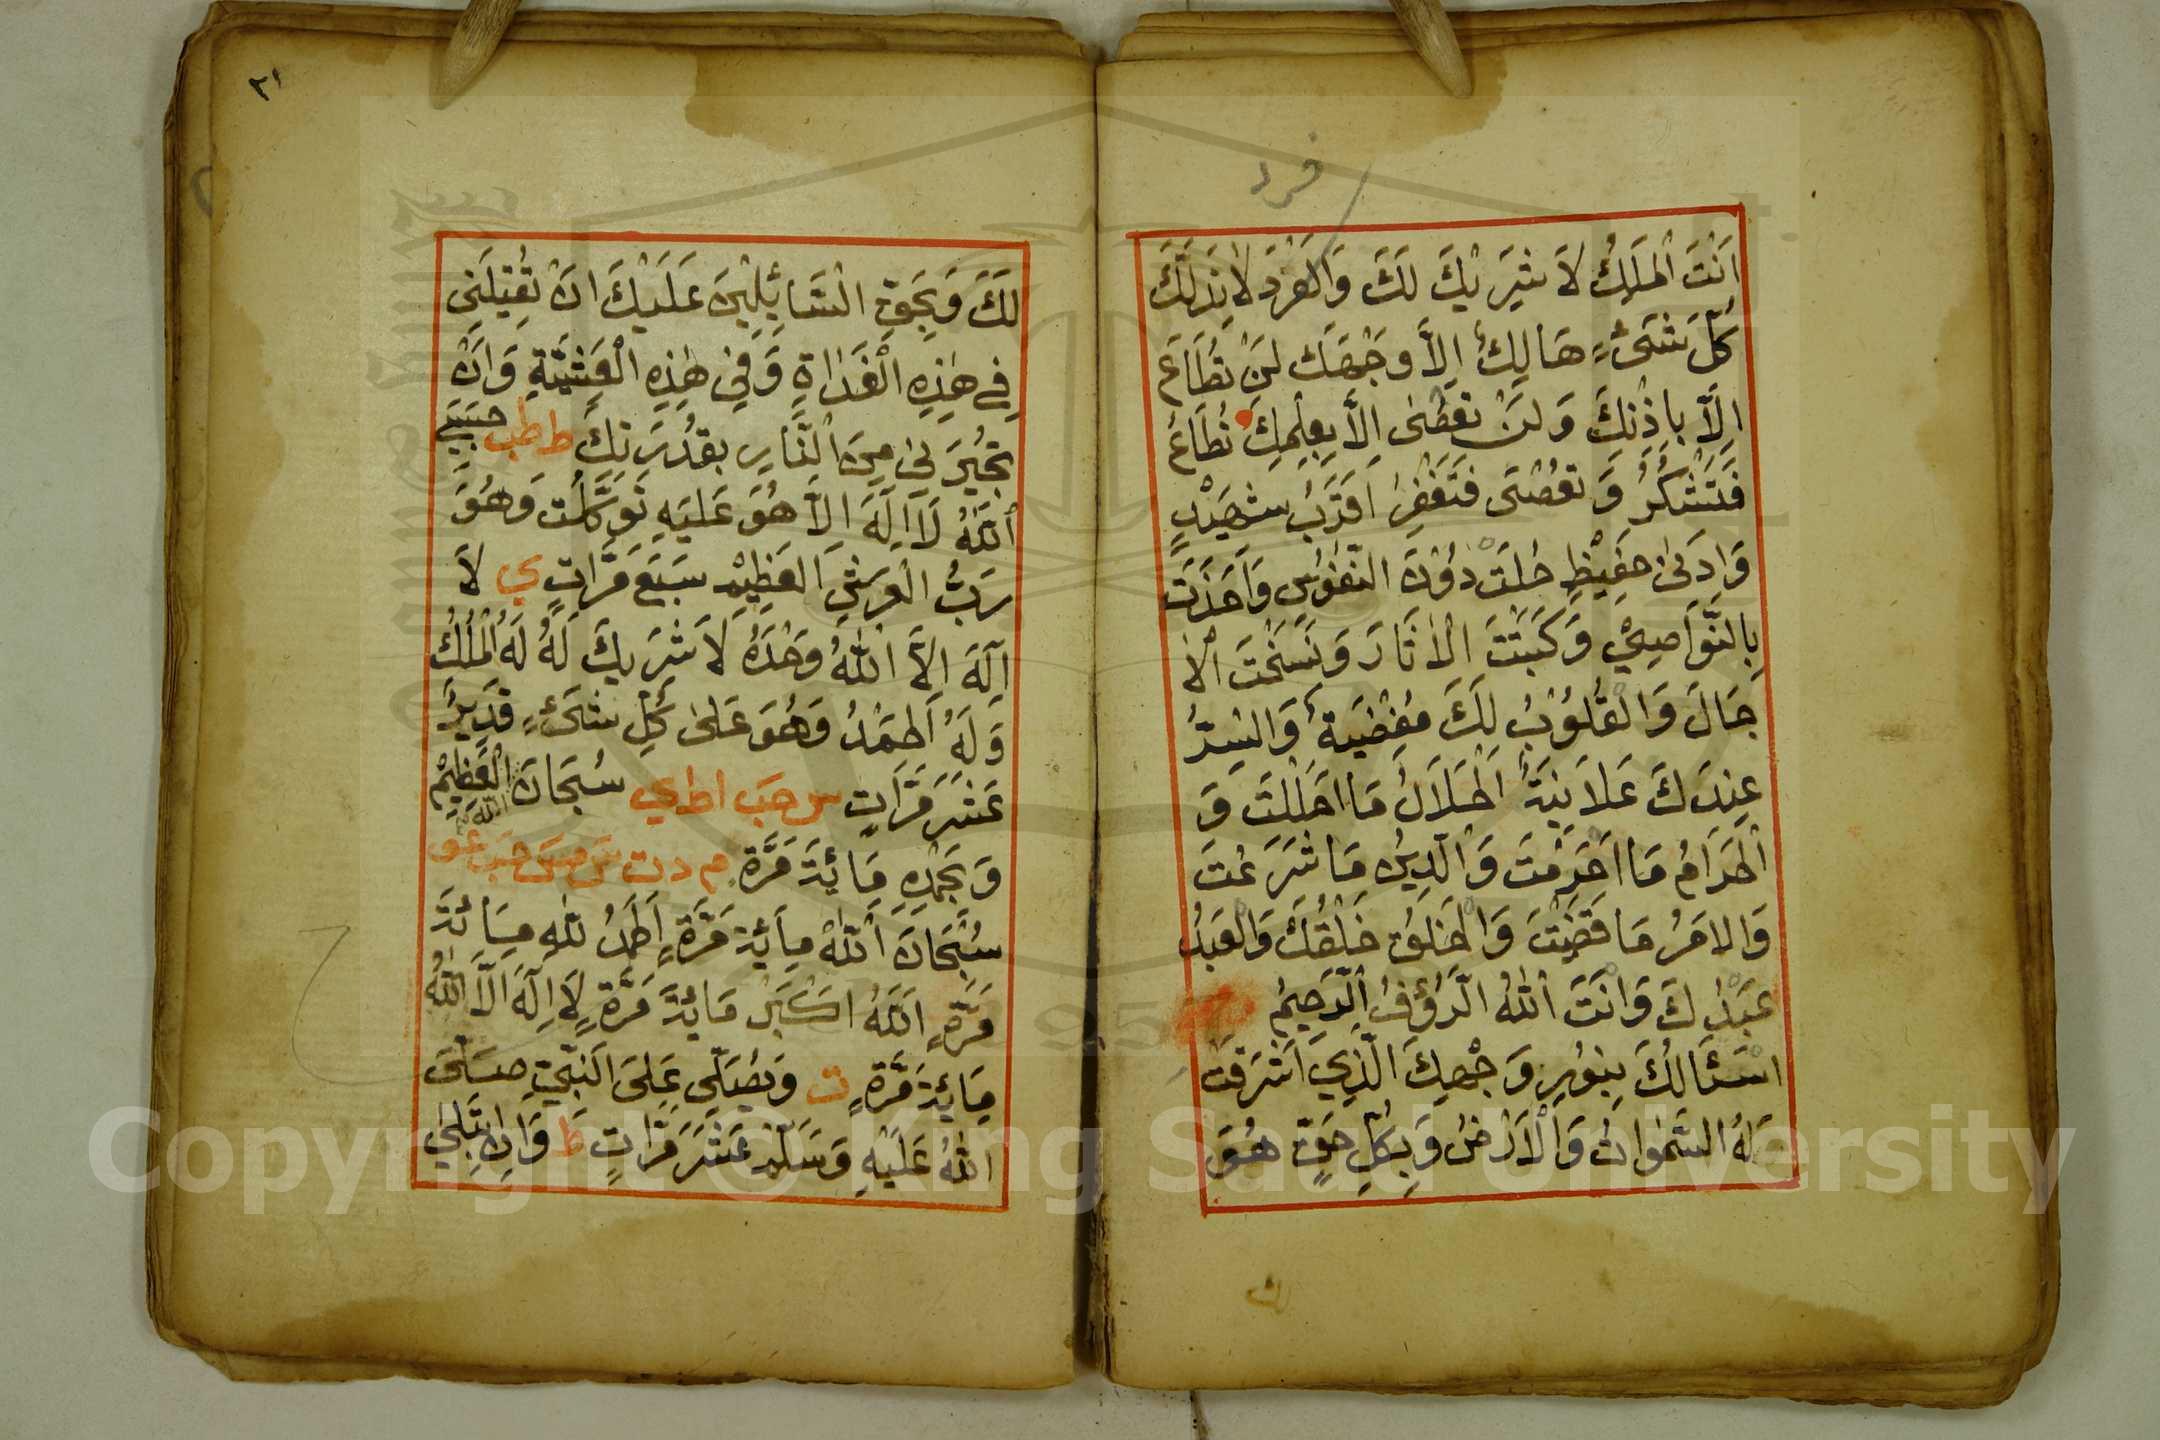 فرد
اَنْتَ الْمَلِكُ لَا شَرِيْكَ لَكَ وَالْفَرْدُ لَا نِدَّ لَكَ
كُلُّ شَىْءٍ هَالِكٌ اِلَّا وَجْهَكَ لَنْ تُطَاعَ
اِلَّا بِاِذْنِكَ وَلَنْ تُعْصٰى اِلَّا بِعِلْمِكَ تُطَاعُ
فَتَشْكُرُ وَ تُعْصٰى فَتَغْفِرُ اَقْرَبُ شَهِيْدٍ
وَاَدْنٰى حَفِيْظٍ حُلْتَ دُوْنَ النُّفُوْسِ وَاَخَذْتَ
بِالنَّوَاصِيْ وَكَتَبْتَ الْاٰثَارَ وَنَسَخْتَ الْاٰ
جَالَ وَالْقُلُوْبُ لَكَ مُفْضِيَةٌ وَالسِّرُّ
عِنْدَكَ عَلَانِيَةٌ اَلْحَلَالُ مَا اَحْلَلْتَ وَ
الْحَرَامُ مَا اَحْرَمْتَ وَالدِّيْنُ مَا شَرَعْتَ
وَالْاَمْرُ مَا قَضَيْتَ وَالْخَلْقُ خَلْقُكَ وَالْعَبْدُ
عَبْدُكَ وَاَنْتَ اللّٰهُ الرَّؤُفُ الرَّحِيْمُ
اَسْئَالُكَ بِنُوْرِ وَجْهِكَ الَّذِيْ اَشْرَقَتْ
لَهُ السَّمٰوَاتُ وَالْاَرْضُ وَبِكُلِّ حَقٍّ هُوَ
٣١
لَكَ وَبِحَقِّ السَّائِلِيْنَ عَلَيْكَ اَنْ تُقِيْلَنِىْ
فِىْ هٰذِهِ الْغَدَاةِ وَفِىْ هٰذِهِ الْعَشِيَّةِ وَاَنْ
تُجِيْرَنِىْ مِنَ النَّارِ بِقُدْرَتِكَ ط طب حَسْبِىَ
اللّٰهُ لَا اِلٰهَ اِلَّا هُوَ عَلَيْهِ تَوَكَّلْتُ وَهُوَ
رَبُّ الْعَرْشِ الْعَظِيْمِ سَبْعَ مَرَّاتٍ ي لَا
اِلٰهَ اِلَّا اللّٰهُ وَحْدَهُ لَا شَرِيْكَ لَهُ لَهُ الْمُلْكُ
وَلَهُ الْحَمْدُ وَهُوَ عَلىٰ كُلِّ شَىْءٍ قَدِيْرٌ
عَشْرَ مَرَّاتٍ س حب ا ط ي سُبْحَانَ اللّٰهِ الْعَظِيْمِ
وَبِحَمْدِهِ مِائَةَ مَرَّةٍ م د ت س مس حب عو
سُبْحَانَ اللّٰهِ مِائَةَ مَرَّةٍ اَلْحَمْدُ لِلّٰهِ مِائَةَ
مَرَّةٍ اَللّٰهُ اَكْبَرُ مِائَةَ مَرَّةٍ لَا اِلٰهَ اِلَّا اللّٰهُ
مِائَةَ مَرَّةٍ ت وَيُصَلِّى عَلَى النَّبِىِّ صَلَّى
اللّٰهُ عَلَيْهِ وَسَلَّمَ عَشْرَ مَرَّاتٍ ط وَاِنِ ابْتُلِىَ
Copyright © King Saud University